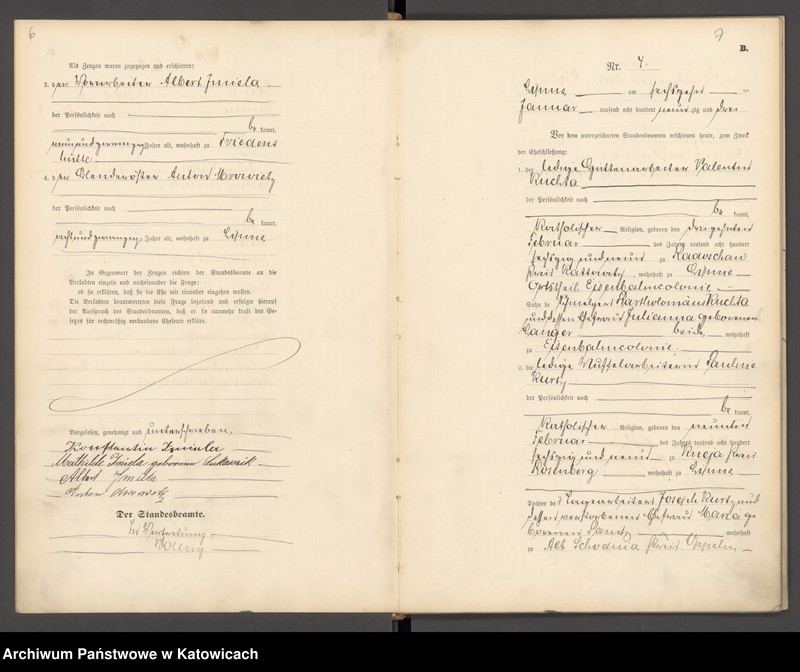 6
Als Zeugen waren zugezogen und erschienen:
3. der Vorarbeiter Albert Jmiela
der Persönlichkeit nach
be kannt,
neunundzwanzig Jahre alt, wohnhaft zu Friedens
hütte
4. der Blenderöster Anton Mrowietz
der Persönlichkeit nach
be kannt,
achtundzwanzig Jahre alt, wohnhaft zu Lipine
In Gegenwart der Zeugen richtete der Standesbeamte an die
Verlobten einzeln und nacheinander die Frage:
ob sie erklären, daß sie die Ehe mit einander eingehen wollen.
Die Verlobten beantworteten diese Frage bejahend und erfolgte hierauf
der Ausspruch des Standesbeamten, daß er sie nunmehr kraft des Ge-
setzes für rechtmäßig verbundene Eheleute erkläre.
Vorgelesen, genehmigt und unterschrieben,
Konstantin Jmiela
Mathilde Jmiela geborene
Albert Jmiela
Anton Mrowietz
Der Standesbeamte.
In Vertretung
7
B.
Nr. 4.
Lipine am sechszehn ten
Januar tausend acht hundert neun zig und drei
Vor dem unterzeichneten Standesbeamten erschienen heute, zum Zweck
der Eheschließung:
1. der ledige Hüttenarbeiter Valentin
Kuchta
der Persönlichkeit nach
be kannt,
katholischer Religion, geboren den dreizehnten
Februar des Jahres tausend acht hundert
sechszig und neun zu Radoschau
Kreis Kattowitz, wohnhaft zu Lipine
Ortstheil Eisenbahncolonie
Sohn des Schmelzers Bartholomäus Kuchta
und dessen Ehefrau Julianna geborenen
Langer beide wohnhaft
zu Eisenbahncolonie.
2. die ledige Muffelarbeiterin Pauline
Kurtz
der Persönlichkeit nach
be kannt,
katholischer Religion, geboren den neunten
Februar des Jahres tausend acht hundert
sechszig und neun zu Kneja Kreis
Rosenberg wohnhaft zu Lipine
Tochter des Tagearbeiters Joseph Kurtz und
dessen verstorbenen Ehefrau Maria ge
borenen wohnhaft
zu Alt Schodnia Kreis Oppeln
Archiwum Państwowe w Katowicach